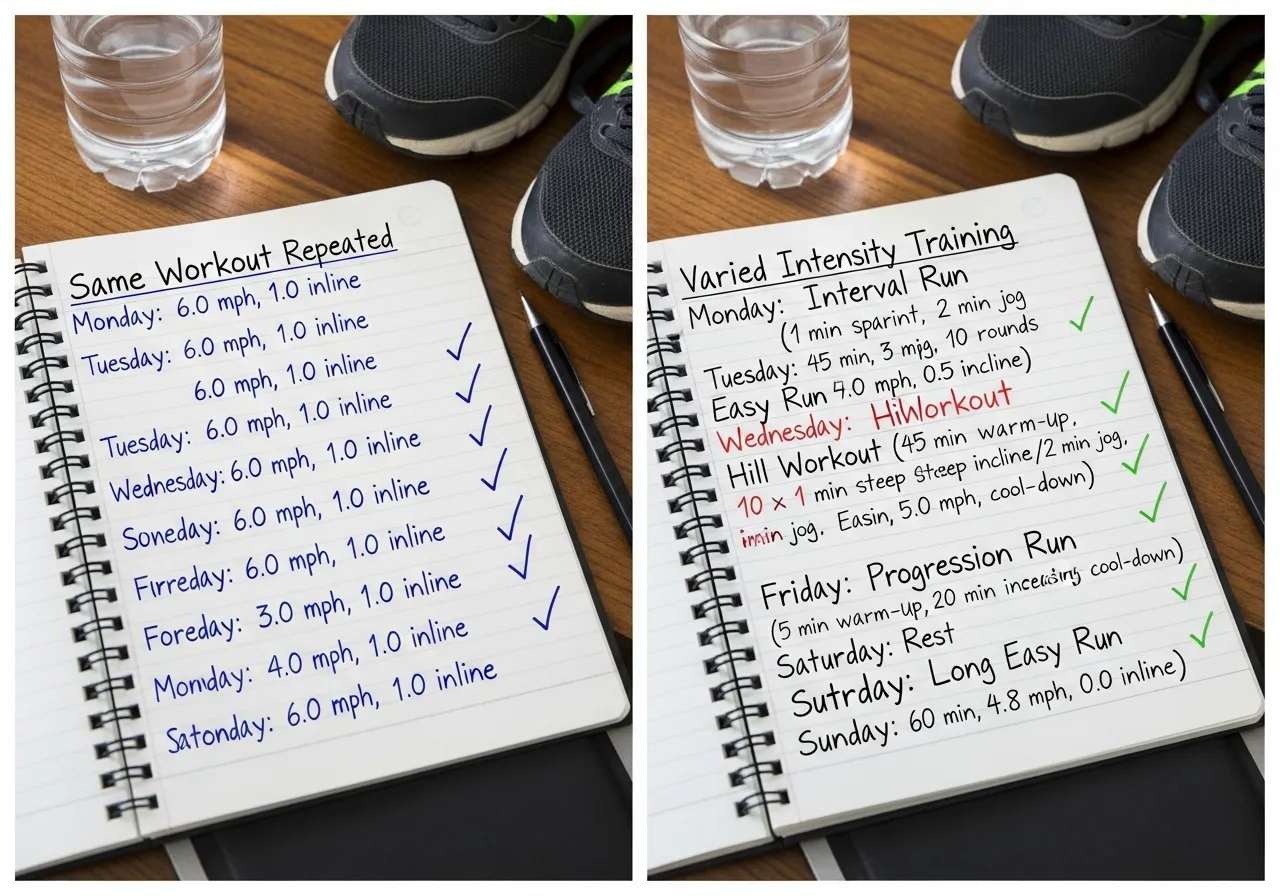 Same Workout Repeated
Monday: 6.0 mph, 1.0 inline
Tuesday: 6.0 mph, 1.0 inline
6.0 mph, 1.0 inline
Tuesday: 6.0 mph, 1.0 inline
Wednesday: 6.0 mph, 1.0 inline
Soneday: 6.0 mph, 1.0 inline
Firreday: 6.0 mph, 1.0 inline
Foreday: 3.0 mph, 1.0 inline
Monday: 4.0 mph, 1.0 inline
Satonday: 6.0 mph, 1.0 inline
Varied Intensity Training
Monday: Interval Run
(1 min sparint, 2 min jog
Tuesday: 45 min, 3 mjg, 10 rounds
Easy Run 4.0 mph, 0.5 incline)
Wednesday: HiWorkout
Hill Workout (45 min warm-up,
10 x 1 min steep Steep incline/2 min jog,
jog. Easin, 5.0 mph, cool-down)
Friday: Progression Run
(5 min warm-up, 20 min cool-down)
Saturday: Rest
Sutrday: Long Easy Run
Sunday: 60 min, 4.8 mph, 0.0 inline)